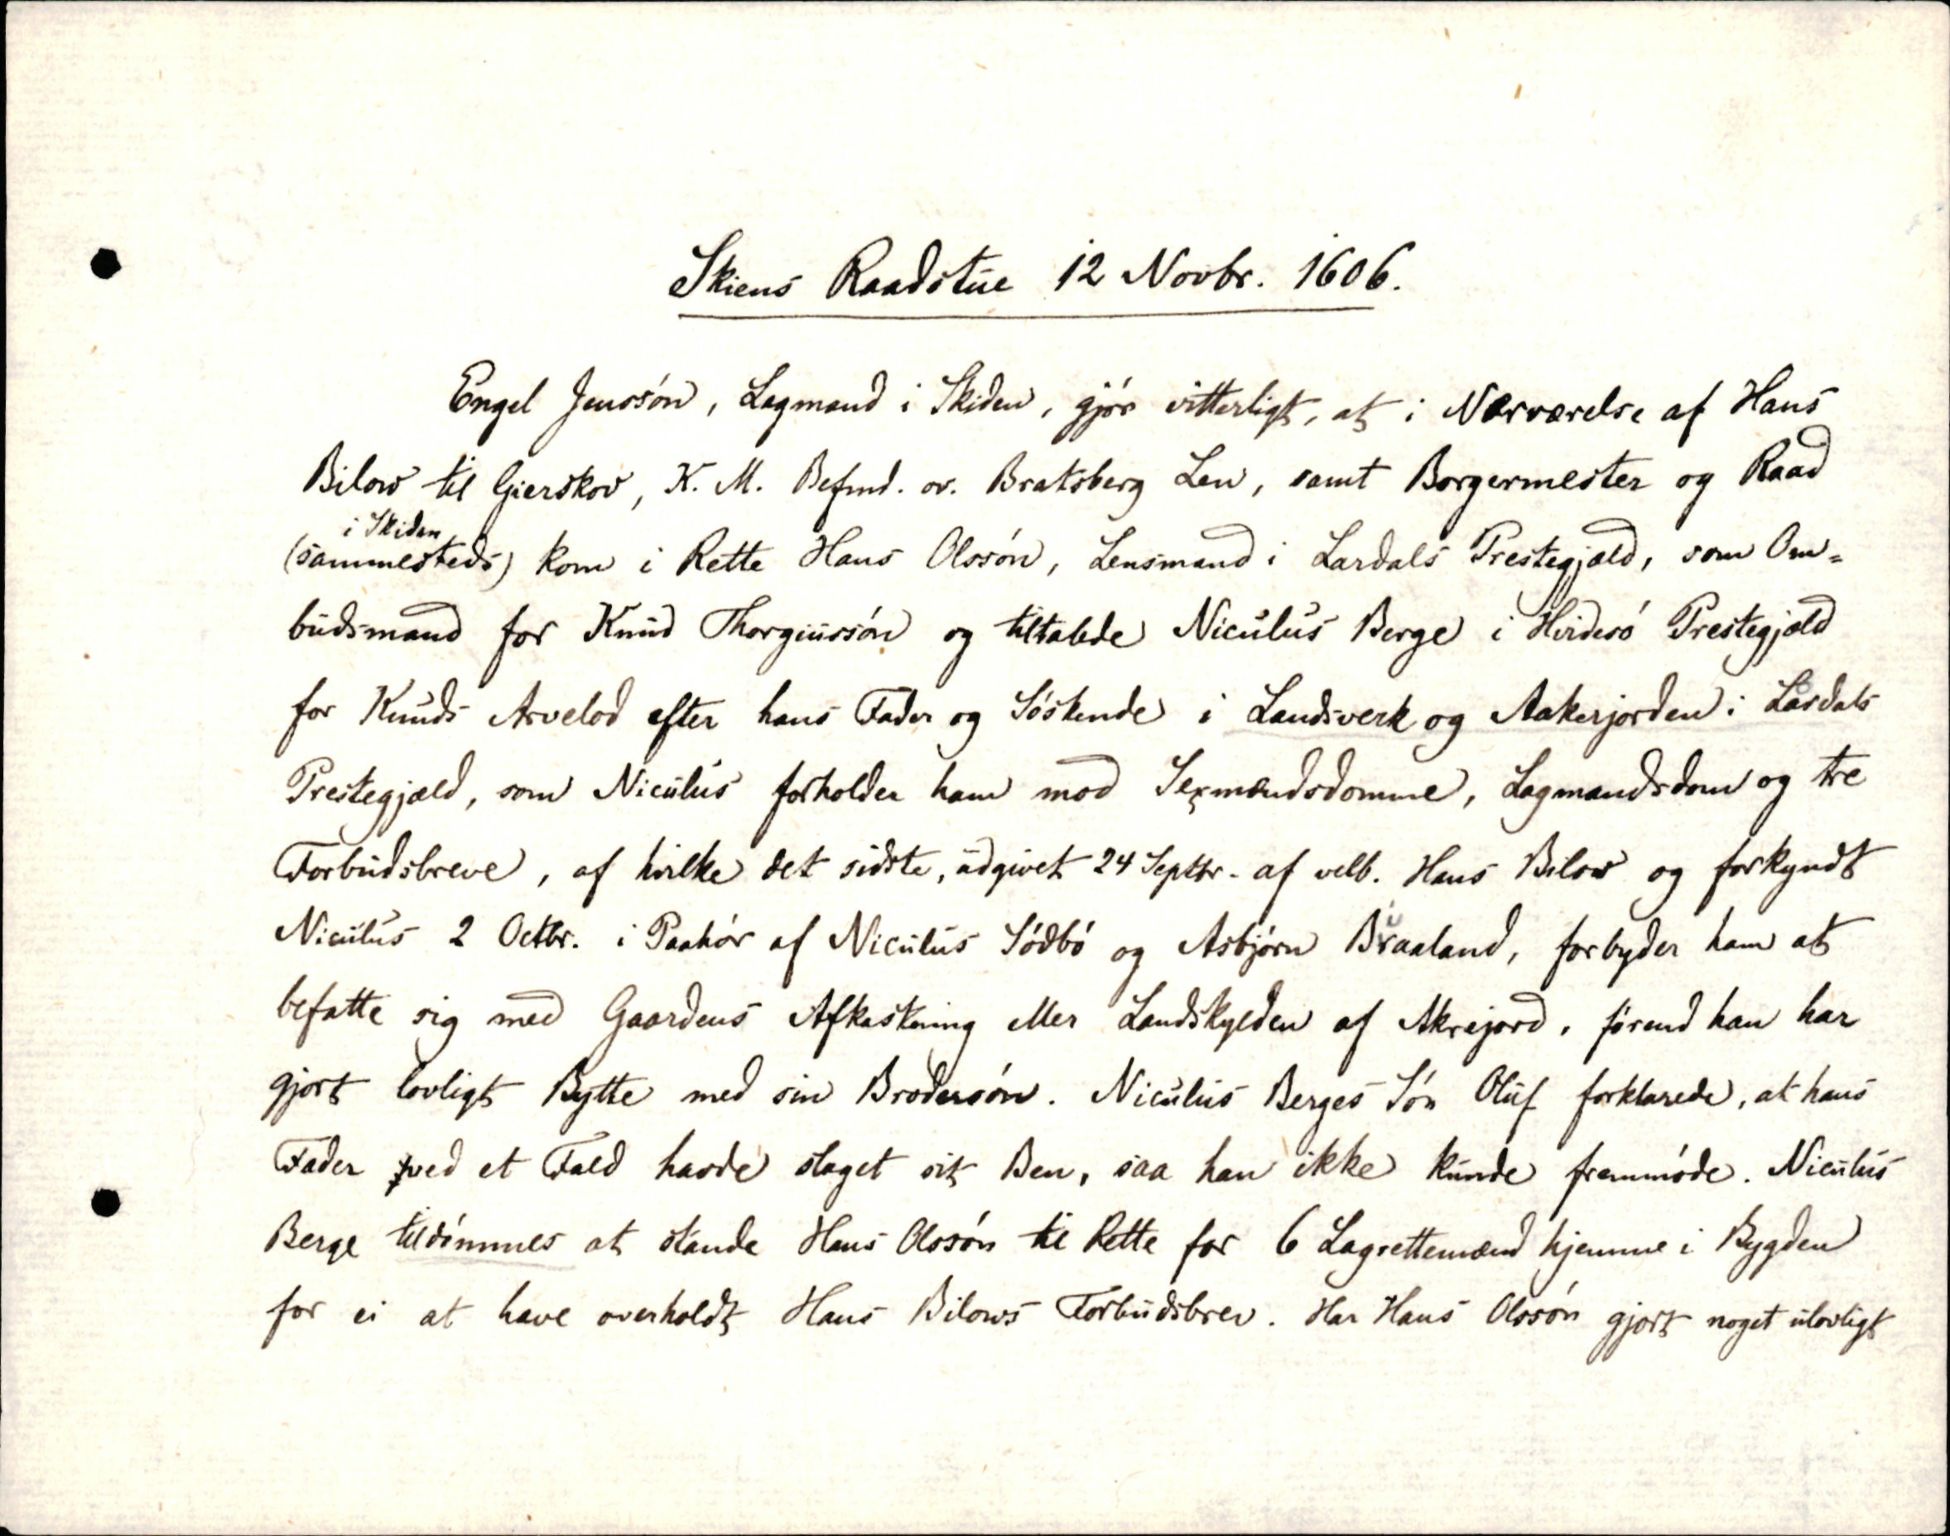 Skiens Raadstue 12 Novbr. 1606.
Engel Jenssón, Lagmand i Skiden, gjór vitterligt, at i Nærværelse af Hans
Bilow til Gierskov, K. M. Befmd. ov. Bratsberg Len, samt Borgermester og Raad
i Skiden
(sammesteds) kom i Rette Hans Olssón, Lensmand i Lardals Prestegjæld, som Om=
budsmand for Knud Thorgiussón og tiltalede Niculus Berge i Hvidesó Prestegjæld
for Knuds Arvelod efter hans Fader og Sóskende i Landsverk og Aakerjorden i Lardals
Prestegjæld, som Niculus forholder ham mod Sexmændsdomme, Lagmandsdom og tre
Forbudsbreve, af hvilke det sidste, udgivet 24 Septbr. af velb. Hans Bilow og forkyndt
Niculus 2 Octbr. i Paahór af Niculus Sódbó og Asbjórn Braaland, forbyder ham at
befatte sig med Gaardens Afkastning eller Landskylden af Akrejord, fórend han har
gjort lovligt Bytte med sin Brodersón. Niculus Berges Són Oluf forklarede, at hans
Fader ved et Fald havde slaget sit Ben, saa han ikke kunde fremmóde. Niculus
Berge tildómmes at stande Hans Olssón til Rette for 6 Lagrettemænd hjemme i Bygden
for ei at have overholdt Hans Bilows Forbudsbrev. Har Hans Olssón gjort noget ulovligt